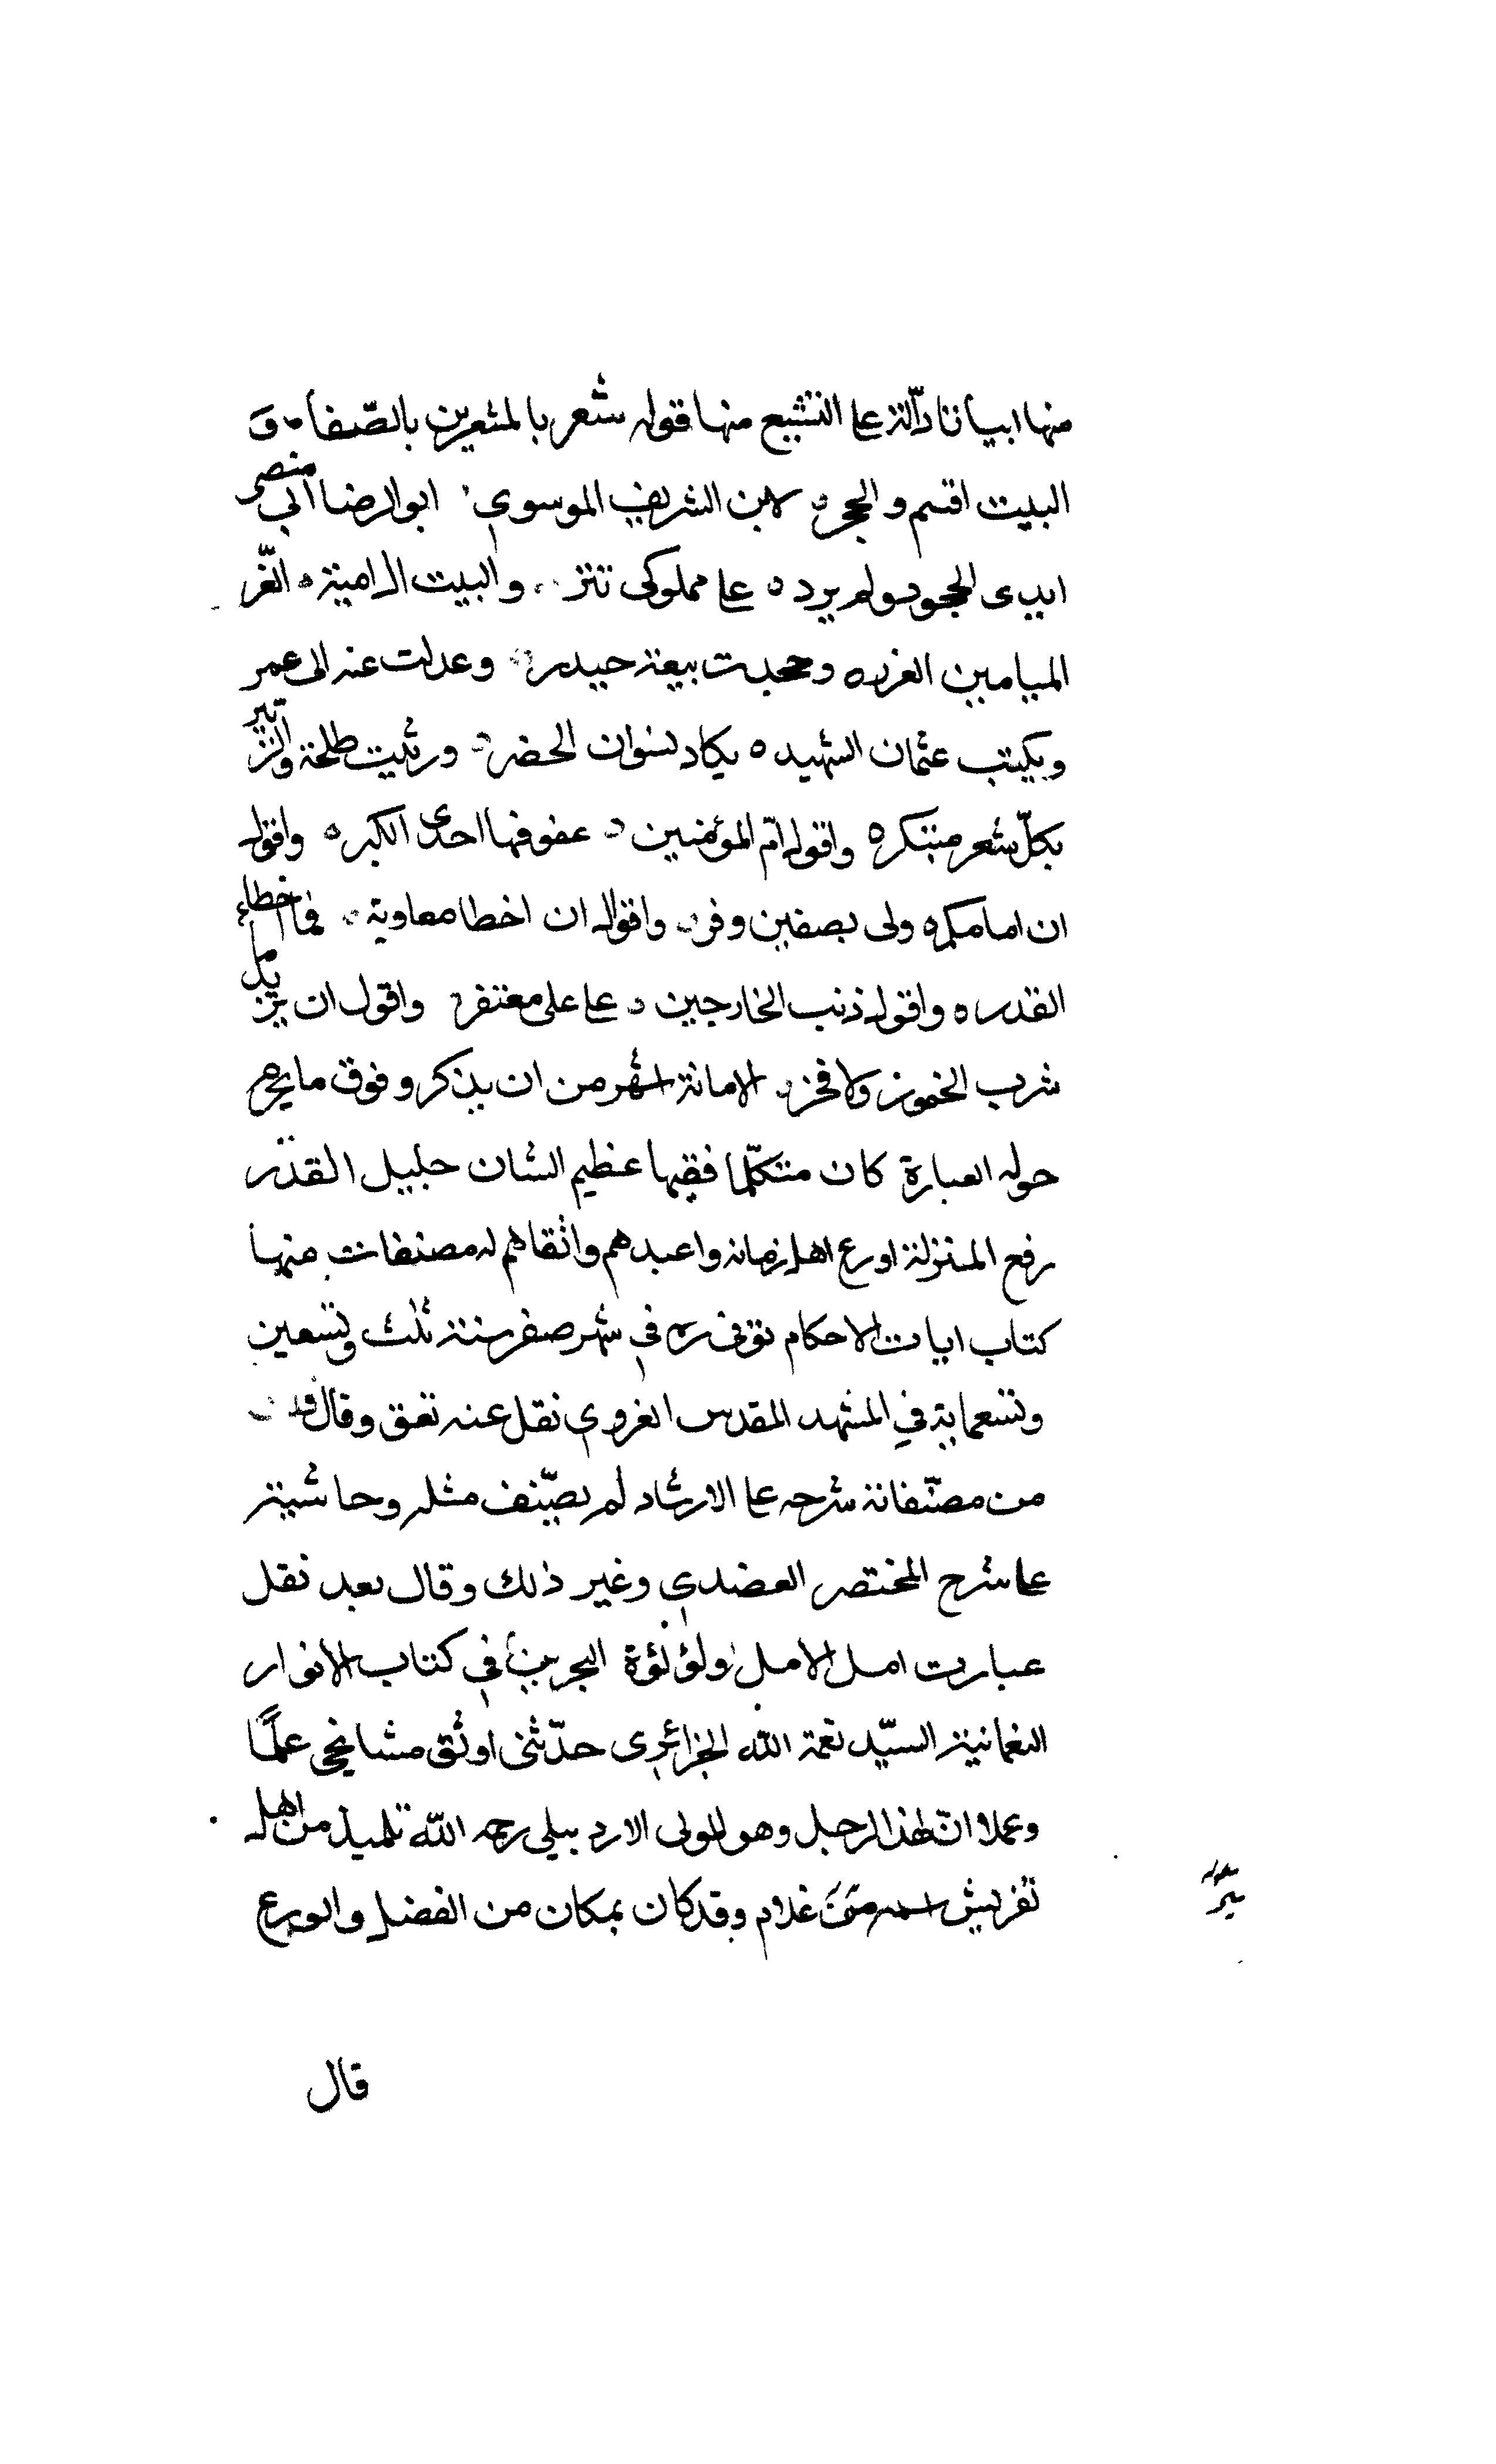 منها ابياتا دالّة على التشيع منها قوله شعر بالمشعرين بالصّفا و
البيت اقسم والحجر لابن الشريف الموسوي ابو الرضا ابي منصر
ابدى الجحود ولم يرد على مملوكى تتر والبيت ال امية الغّر
الميامين الغرر وجحدت بيعة حيدر وعدلت عنه الى عمر
ويكيتب عثمان الشهيد بكاد نسوان الحضر ورثيت طلحة والزبير
بكلّ شعر مبتكر واقول امّ المؤمنين عقوقها احدى الكبر واقول
ان امامكم ولى بصفين وفر واقول ان اخطا معاوية فما اخطاء
القدر واقول ذنب الخارجين على على مغتفر واقول ان يزيد ما
شرب الخمور ولا فجر الامانة اشهر من ان يذكر وفوق ما يحرم
حوله العبارة كان متكلّما فقيها عظيم الشان جليل القدر
رفع المنزلة اورع اهل زمانه واعبدهم واتقاهم له مصنفات منها
كتاب ايات الاحكام توفى ره في شهر صفر سنة ثلث وتسعين
وتسعماية في المشهد المقدس الغروي نقل عنه تعق وقال
من مصنّفاته شرحه على الارشاد لم يصنّف مثله وحاشيته
على شرح المختصر العضدي وغير ذلك وقال بعد نقل
عبارت امل الامل ولؤلؤة البحرين في كتاب الانوار
النعمانية السيّد نعمة الله الجزائري حدّثنى اوثق مشايخى علمًا
وعملا انّ لهذا الرجل وهو المولى الاردبيلى رحمه الله تلميذ من اهل
تفريش اسمه مير غلام وقد كان بمكان من الفضل والورع
قال